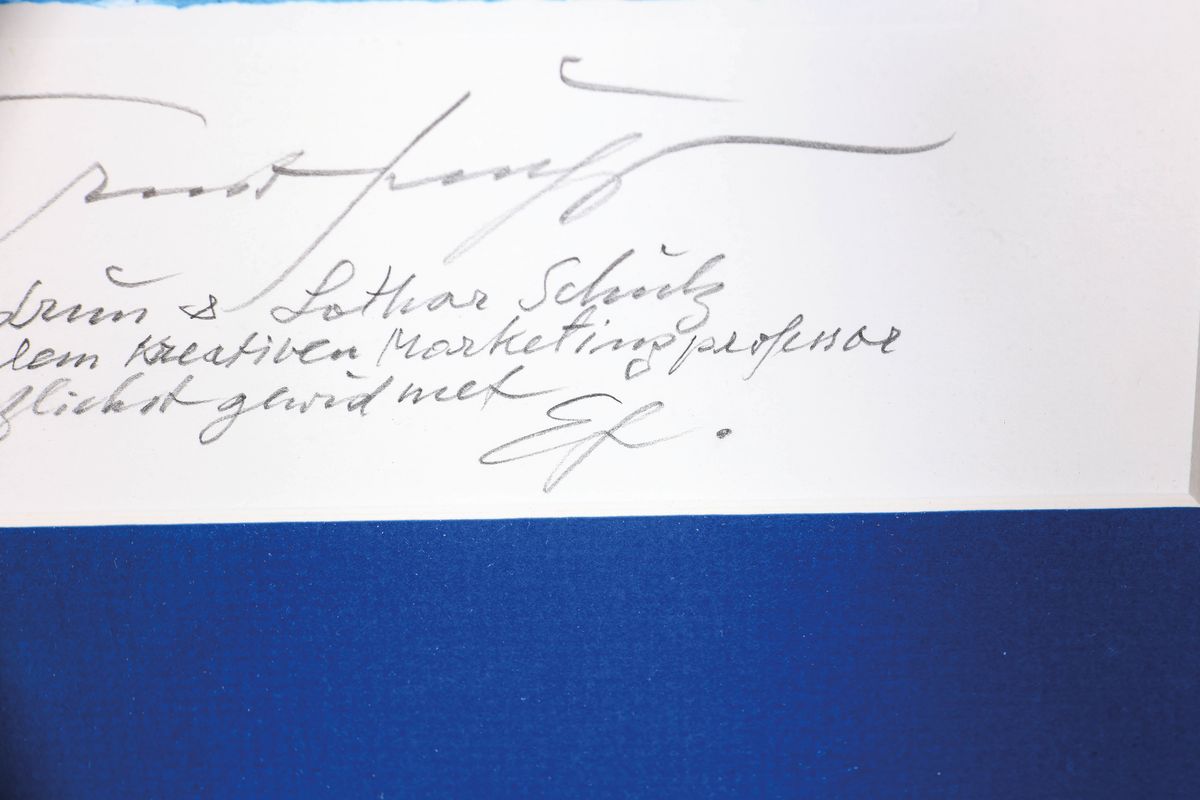 drun & Lothar Schulz
dem kreativen Marketingprofessor
zlichst gewidmet
EF.